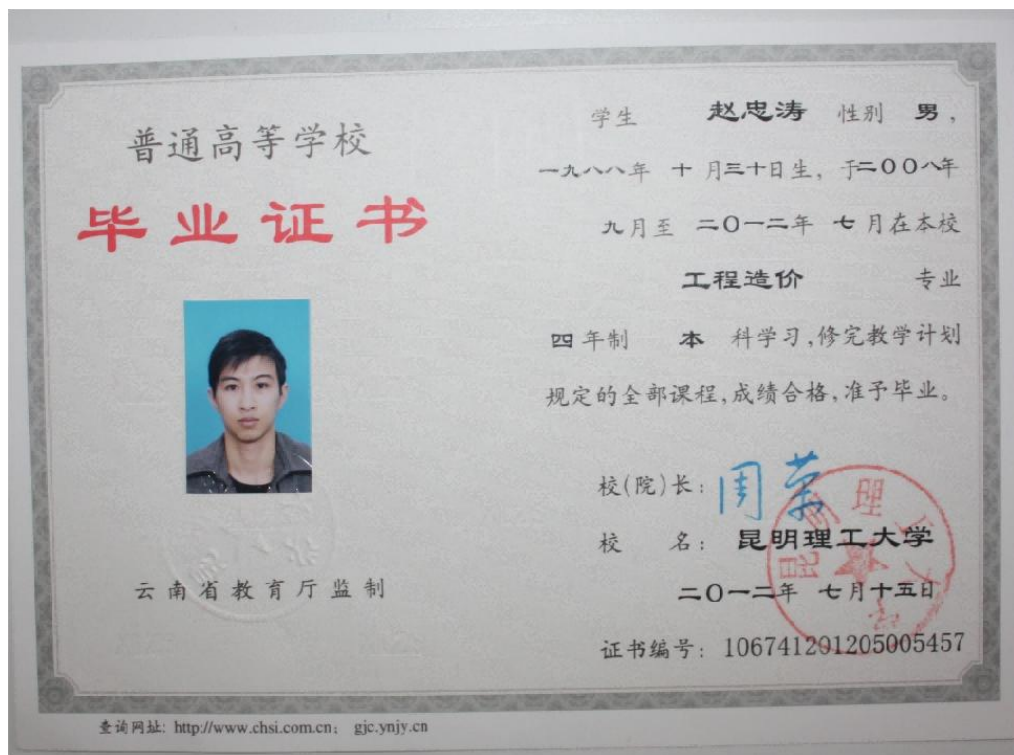 普通高等学校
毕业证书
云南省教育厅监制
学生 赵忠涛 性别 男，
一九八八年 十 月三十日生，于二〇〇八年
九月至 二〇一二年 七月在本校
工程造价 专业
四年制 本 科学习，修完教学计划
规定的全部课程，成绩合格，准予毕业。
校(院)长：周荣
校 名：昆明理工大学
二〇一二年 七月十五日
证书编号：106741201205005457
昆明理工大学
查询网址: http://www.chsi.com.cn; gjc.ynjy.cn